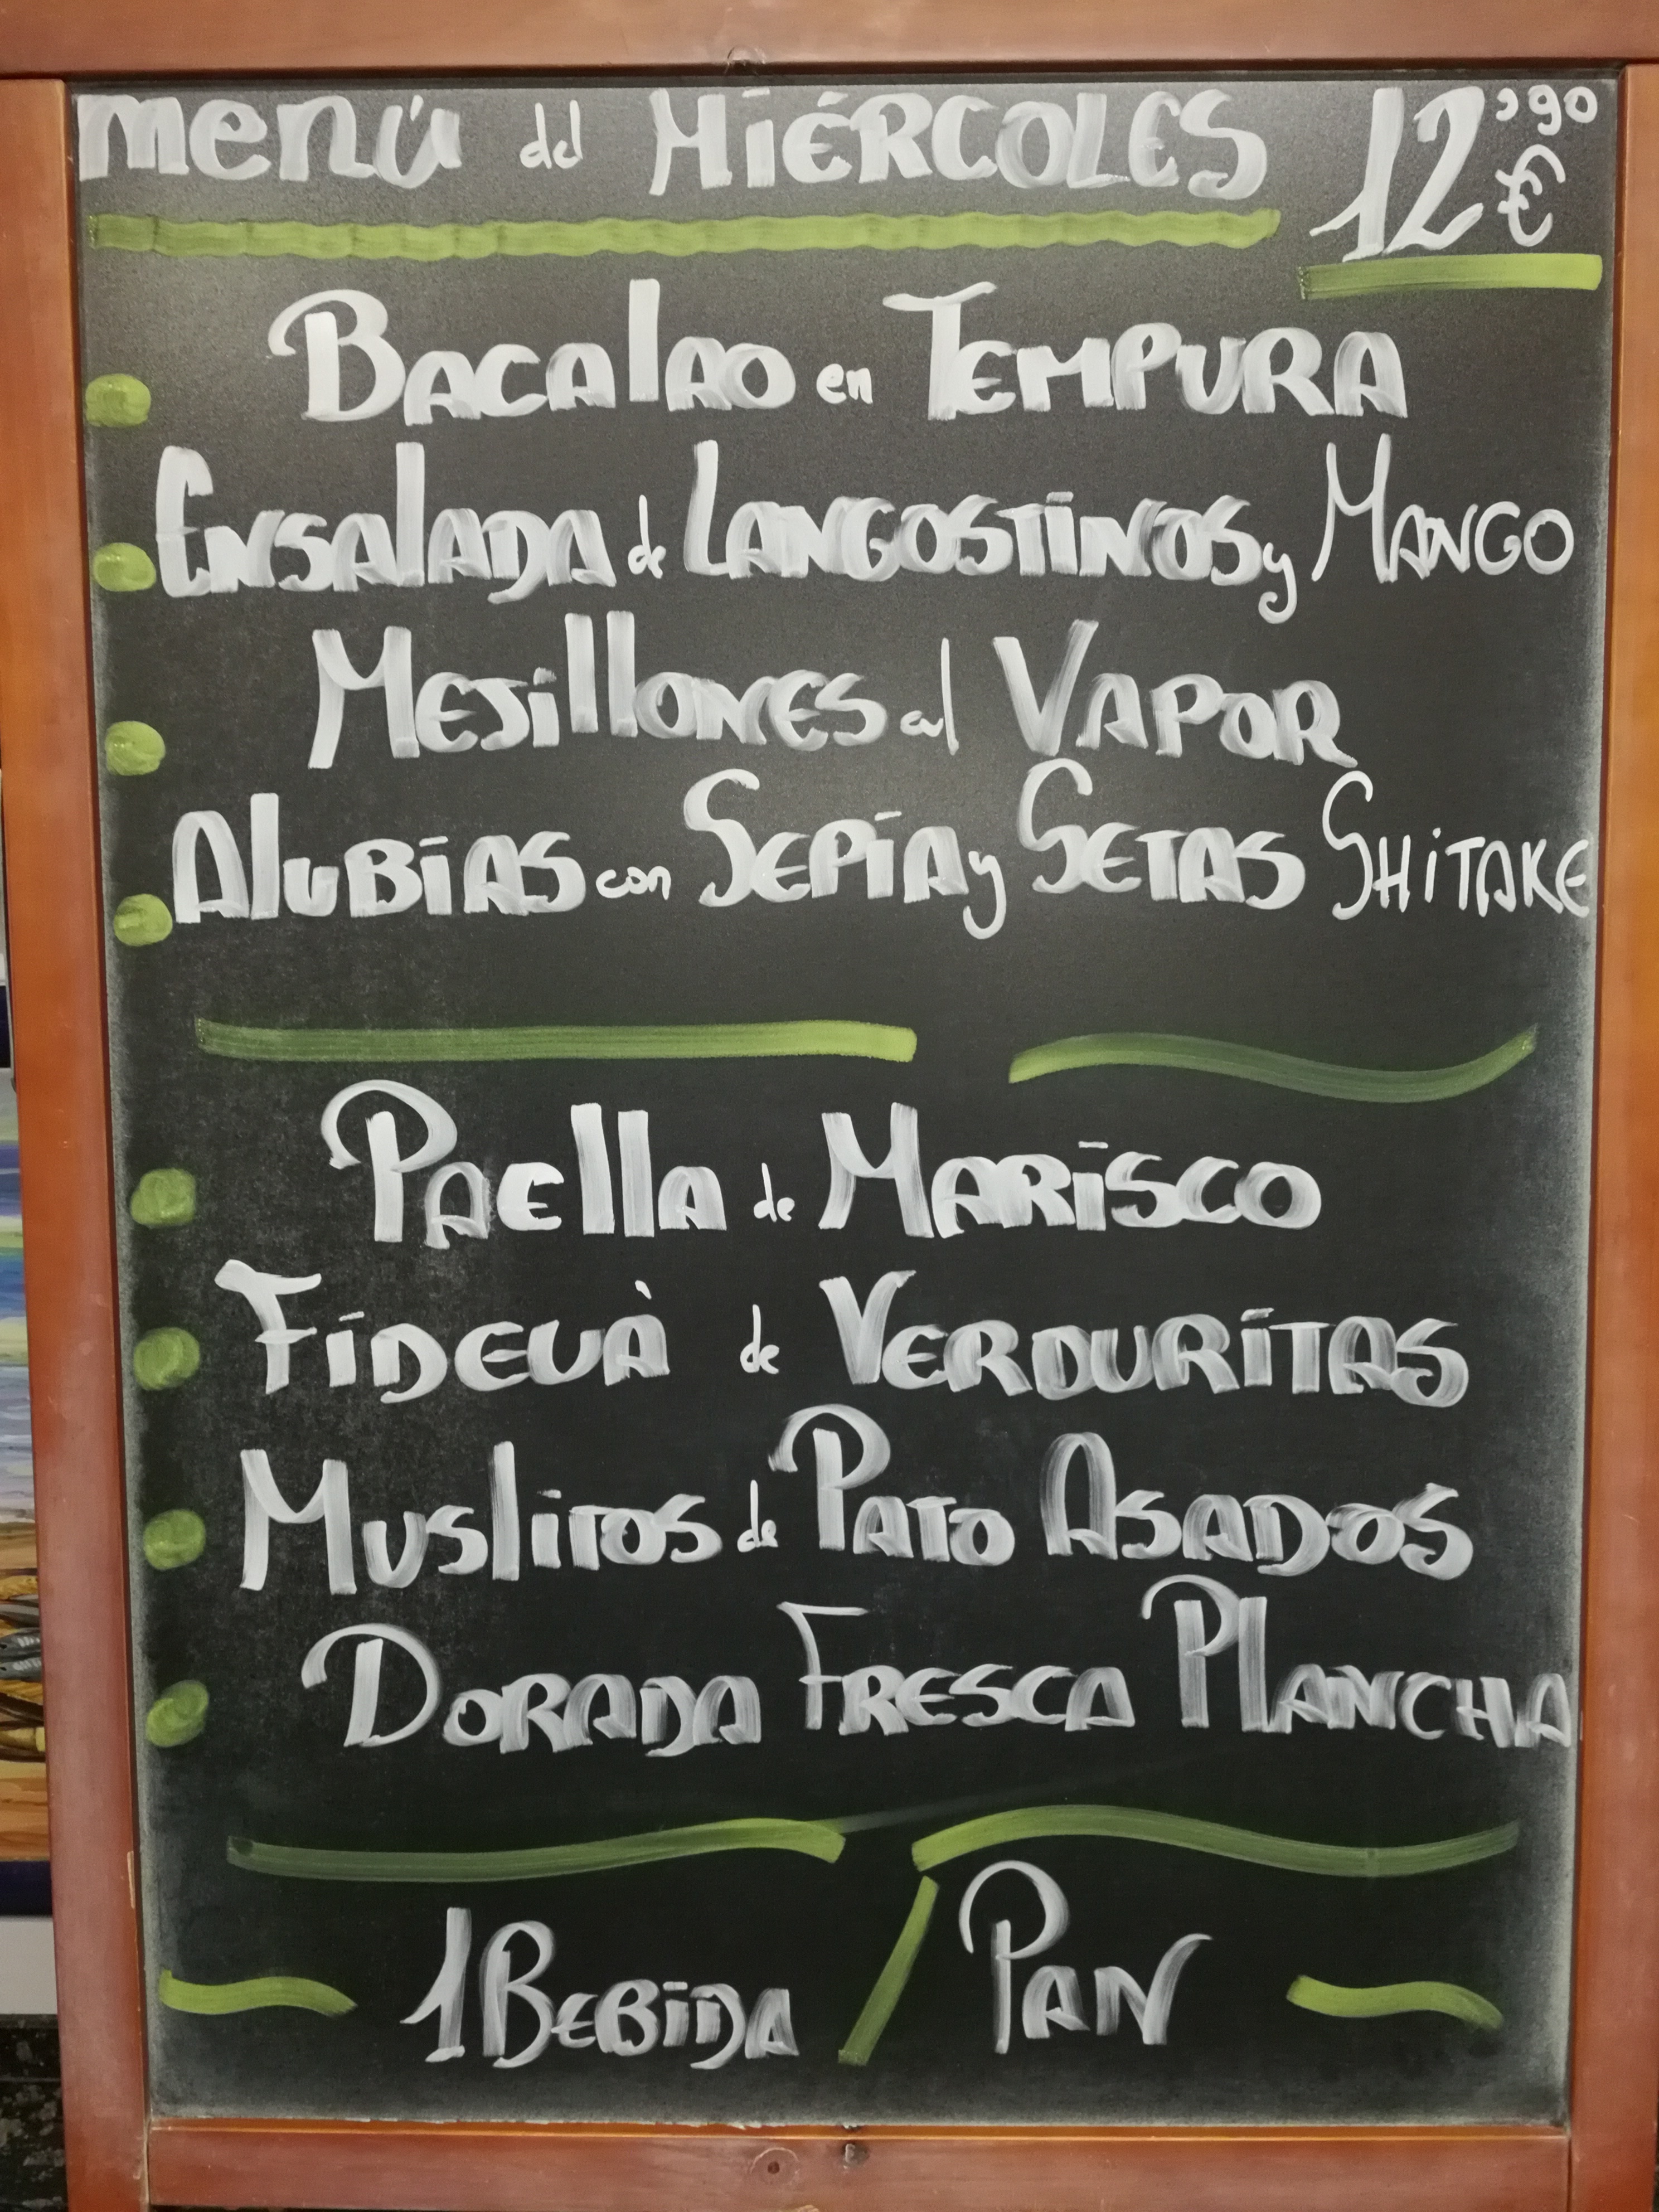 menú del MiÉRCOLES 12'90 €
BACAlAO en TEMPURA
ENSAlADA de LANGOSTiNOS y MANGO
MEJillONES al VAPOR
AluBiAS con SEPiA y SETAS SHiTAKE
PAEllA de MARiSCO
FiDEUÀ de VERDURiTAS
MUSliTOS de PATO ASADOS
DORADA FRESCA PlANCHA
1 BEBiDA / PAN